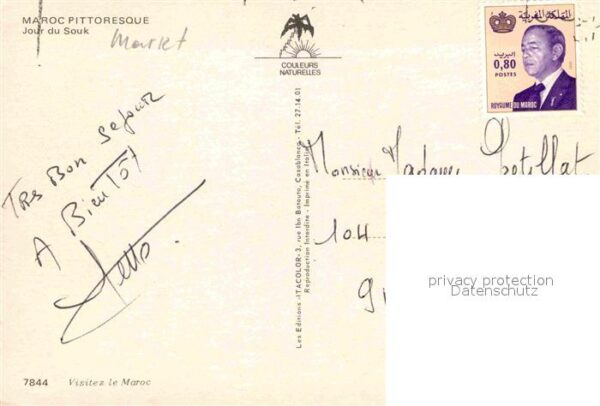 MAROC PITTORESQUE
Jour du Souk
Market
COULEURS
NATURELLES
المملكة المغربية
البريد
0,80
POSTES
ROYAUME DU MAROC
Tres Bon Sejour
A Bientôt
Les Editions «ITACOLOR» 3, rue Ibn Batouta, Casablanca - Tél. 27.14.01
Reproduction Interdite - Imprimé en Italie
Monsieur Madame
104
privacy protection
Datenschutz
7844 Visitez le Maroc